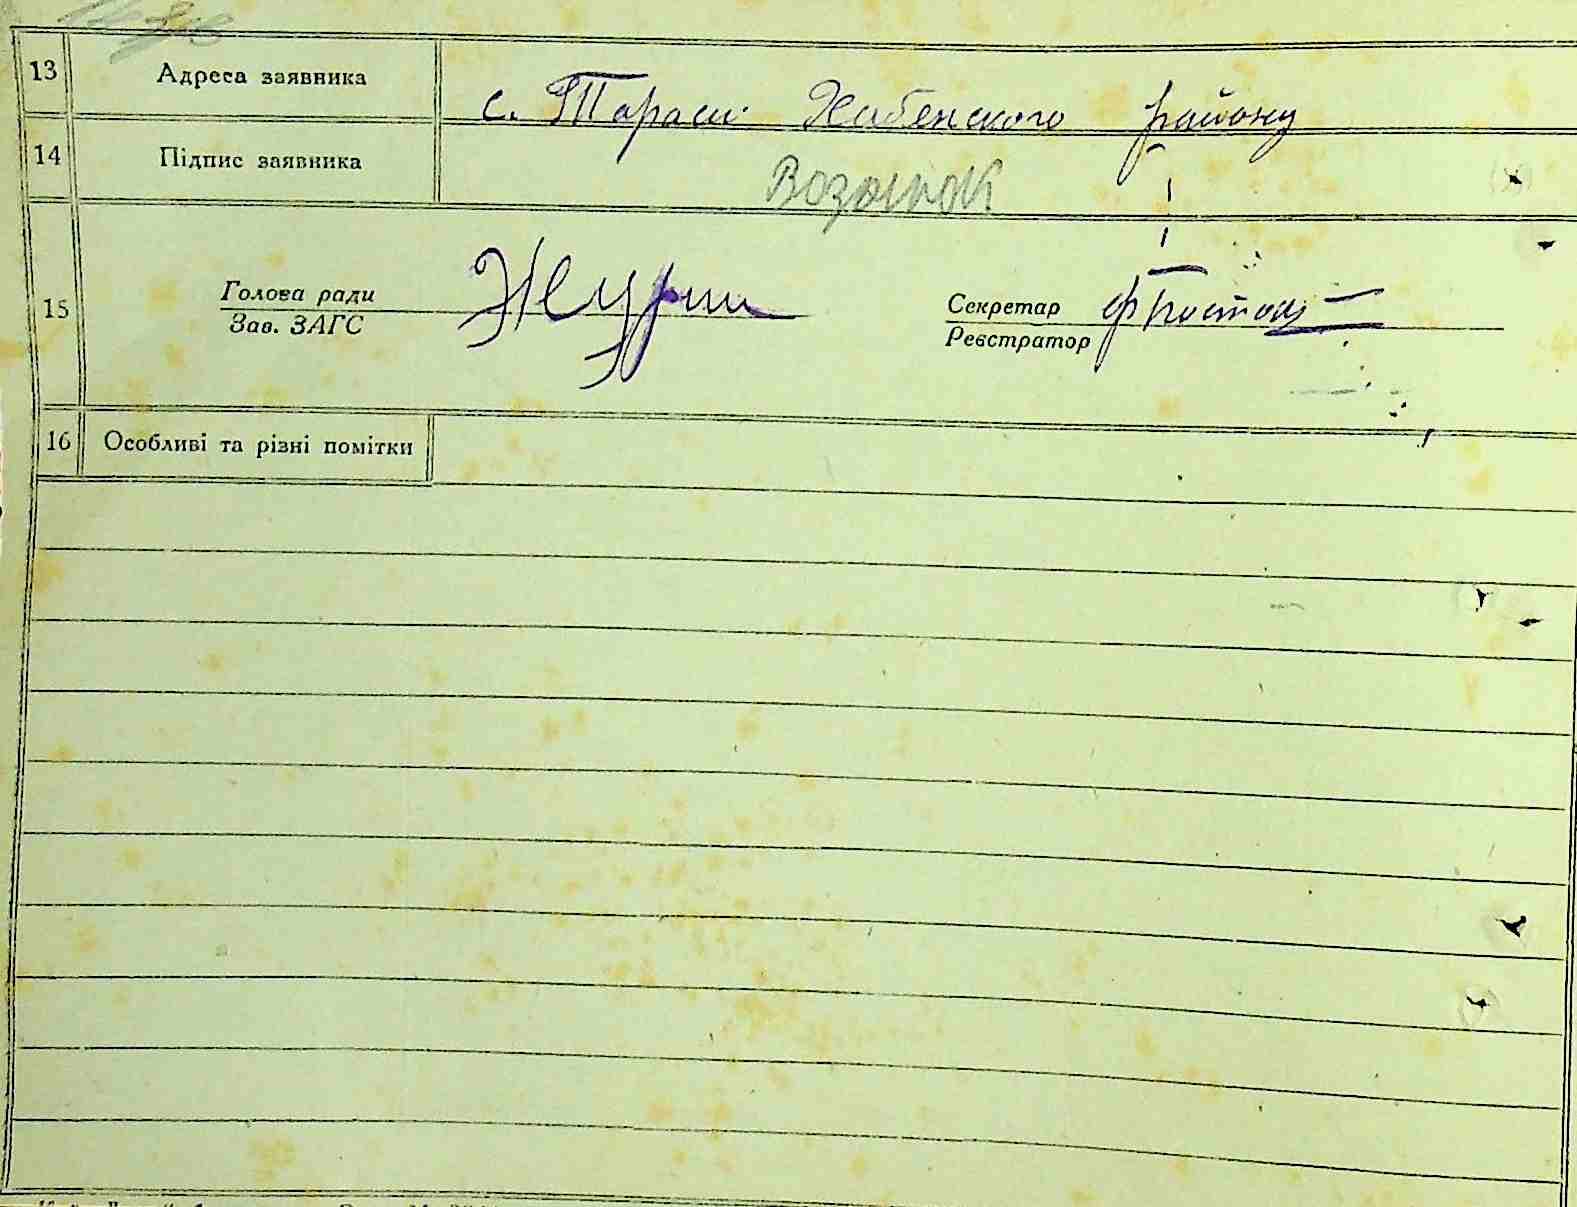 13 Адреса заявника с. Тараси Хабенского району
14 Підпис заявника Возьнюк
15 Голова ради
Зав. ЗАГС
Секретар
Реєстратор
16 Особливі та різні помітки